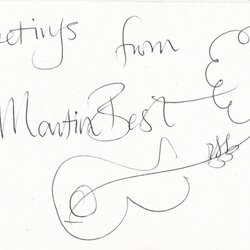 eetings from
Martin Best